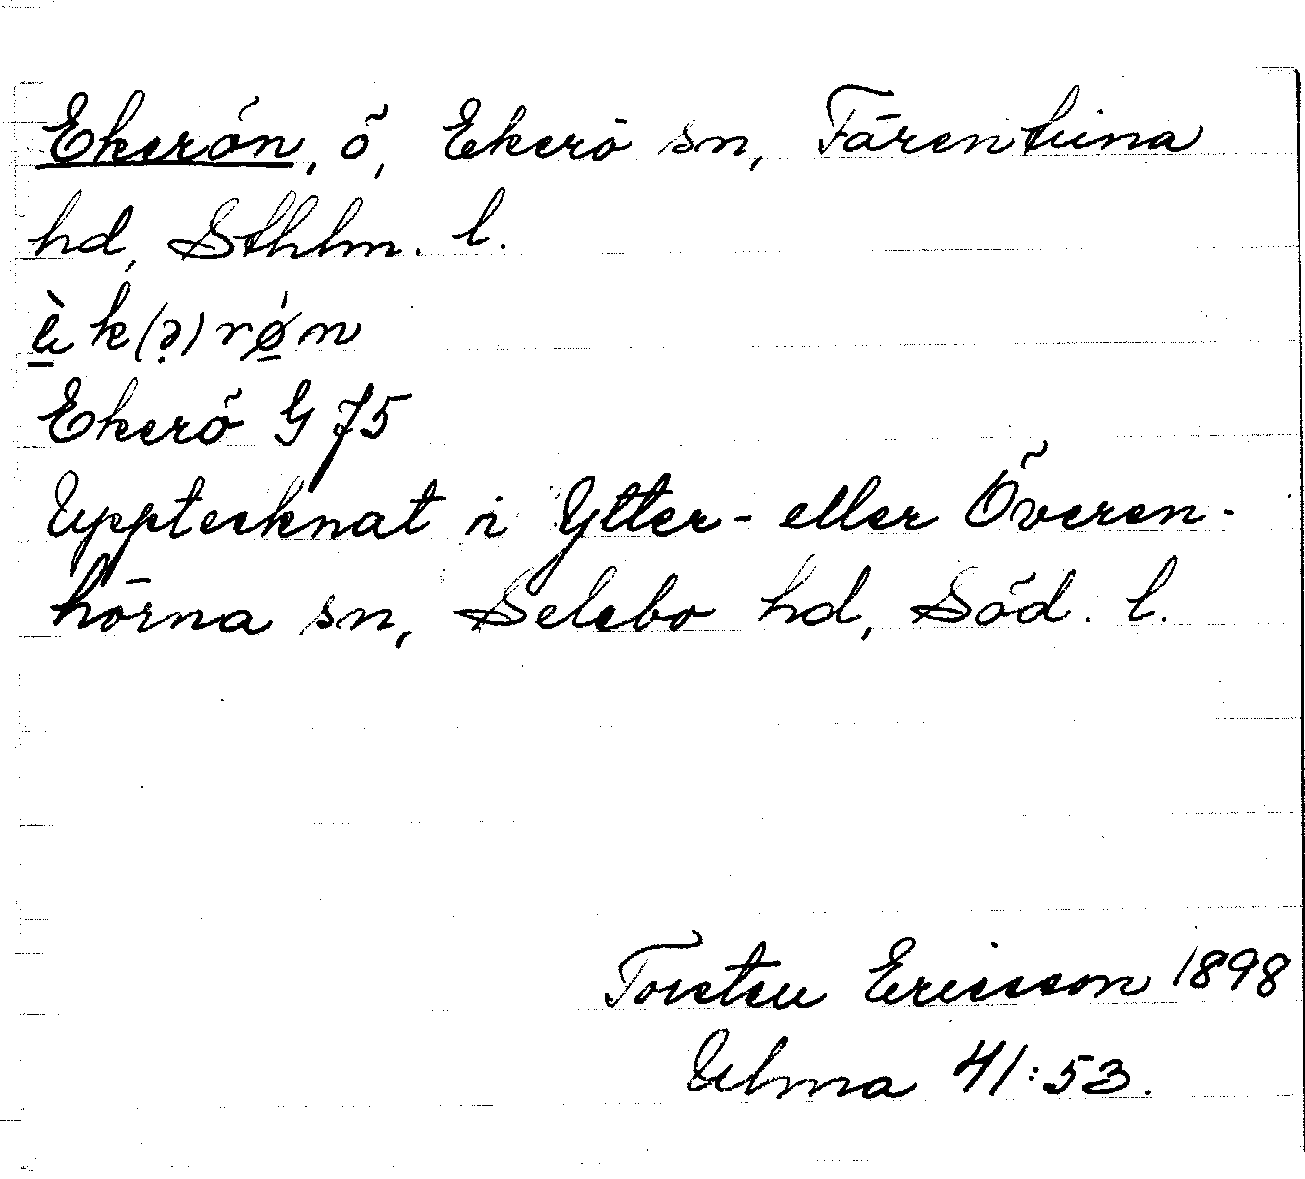 Ekerön, ö, Ekerö sn, Färentuna
hd, Sthlm. l.
è̲k(ə̣)rǿ̲n
Ekerö G 75
Upptecknat i Ytter- eller Överen-
hörna sn, Selebo hd, Söd. l.
Torsten Ericsson 1898
Ulma 41:53.